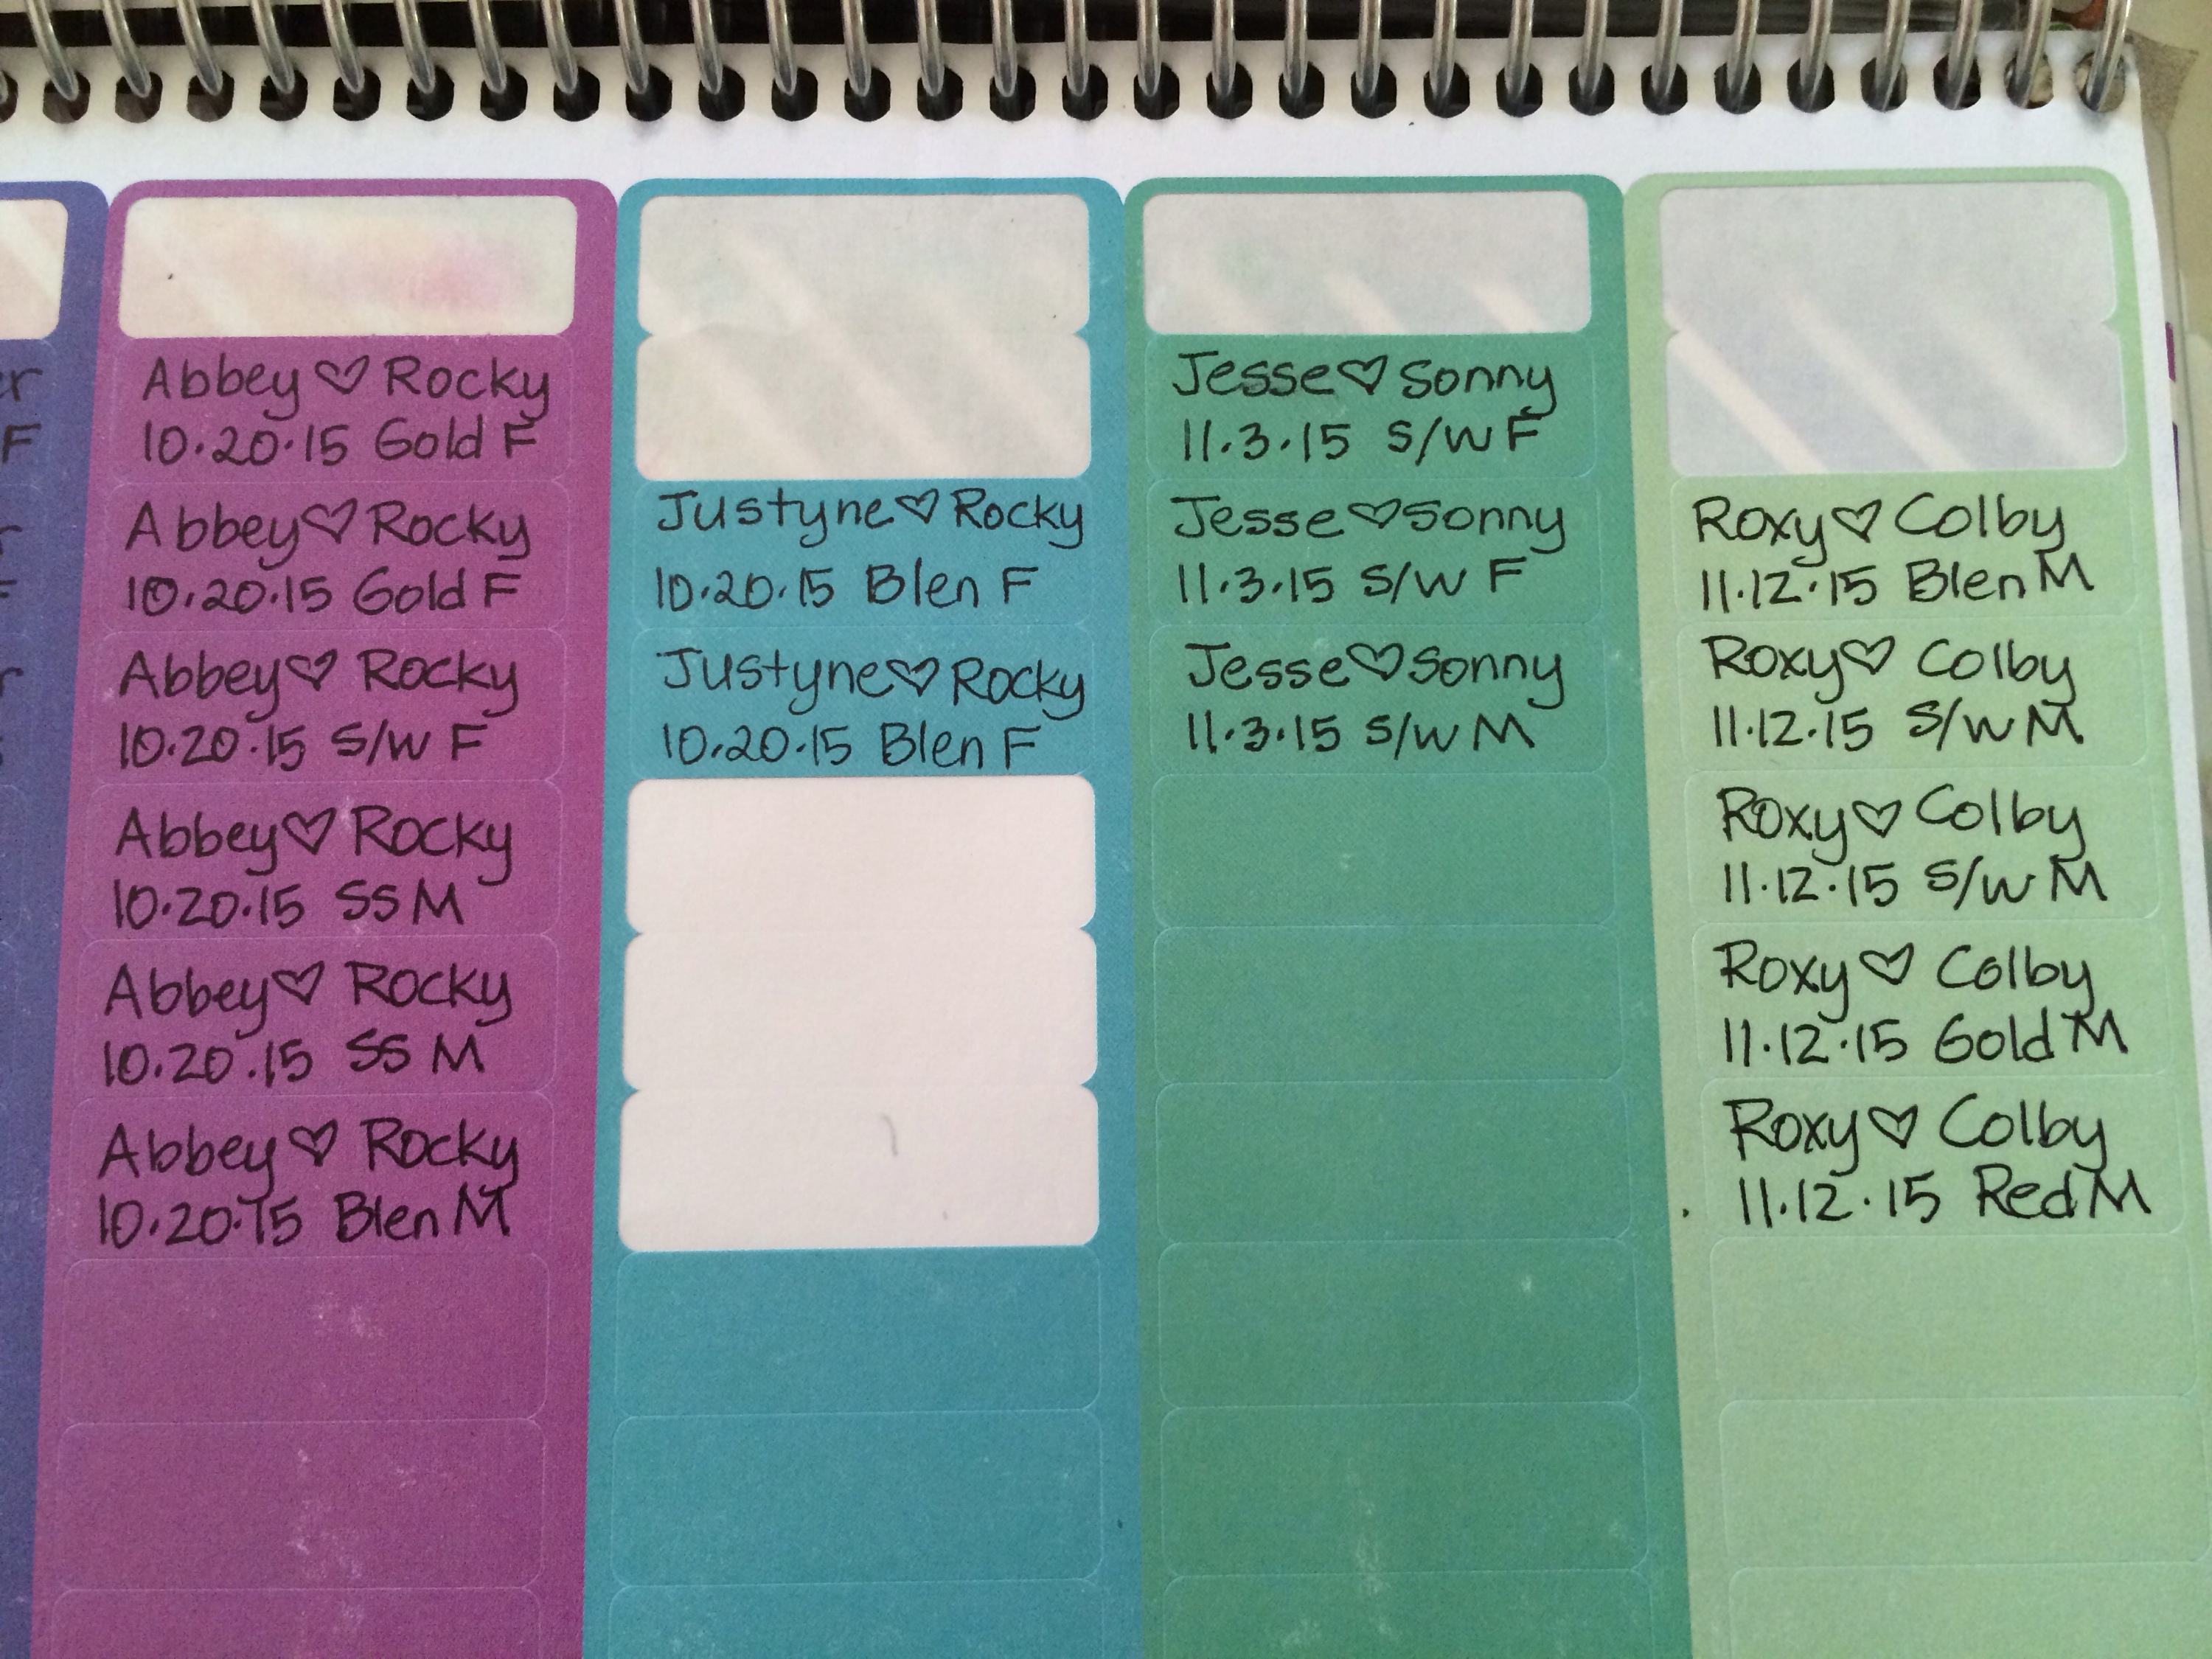 er
F
r
F
r
Abbey ♡ Rocky
10.20.15 Gold F
Abbey ♡ Rocky
10.20.15 Gold F
Abbey ♡ Rocky
10.20.15 S/W F
Abbey ♡ Rocky
10.20.15 SS M
Abbey ♡ Rocky
10.20.15 SS M
Abbey ♡ Rocky
10.20.15 Blen M
Justyne ♡ Rocky
10.20.15 Blen F
Justyne ♡ Rocky
10.20.15 Blen F
Jesse ♡ Sonny
11.3.15 S/W F
Jesse ♡ Sonny
11.3.15 S/W F
Jesse ♡ Sonny
11.3.15 S/W M
Roxy ♡ Colby
11.12.15 Blen M
Roxy ♡ Colby
11.12.15 S/W M
Roxy ♡ Colby
11.12.15 S/W M
Roxy ♡ Colby
11.12.15 Gold M
Roxy ♡ Colby
11.12.15 Red M